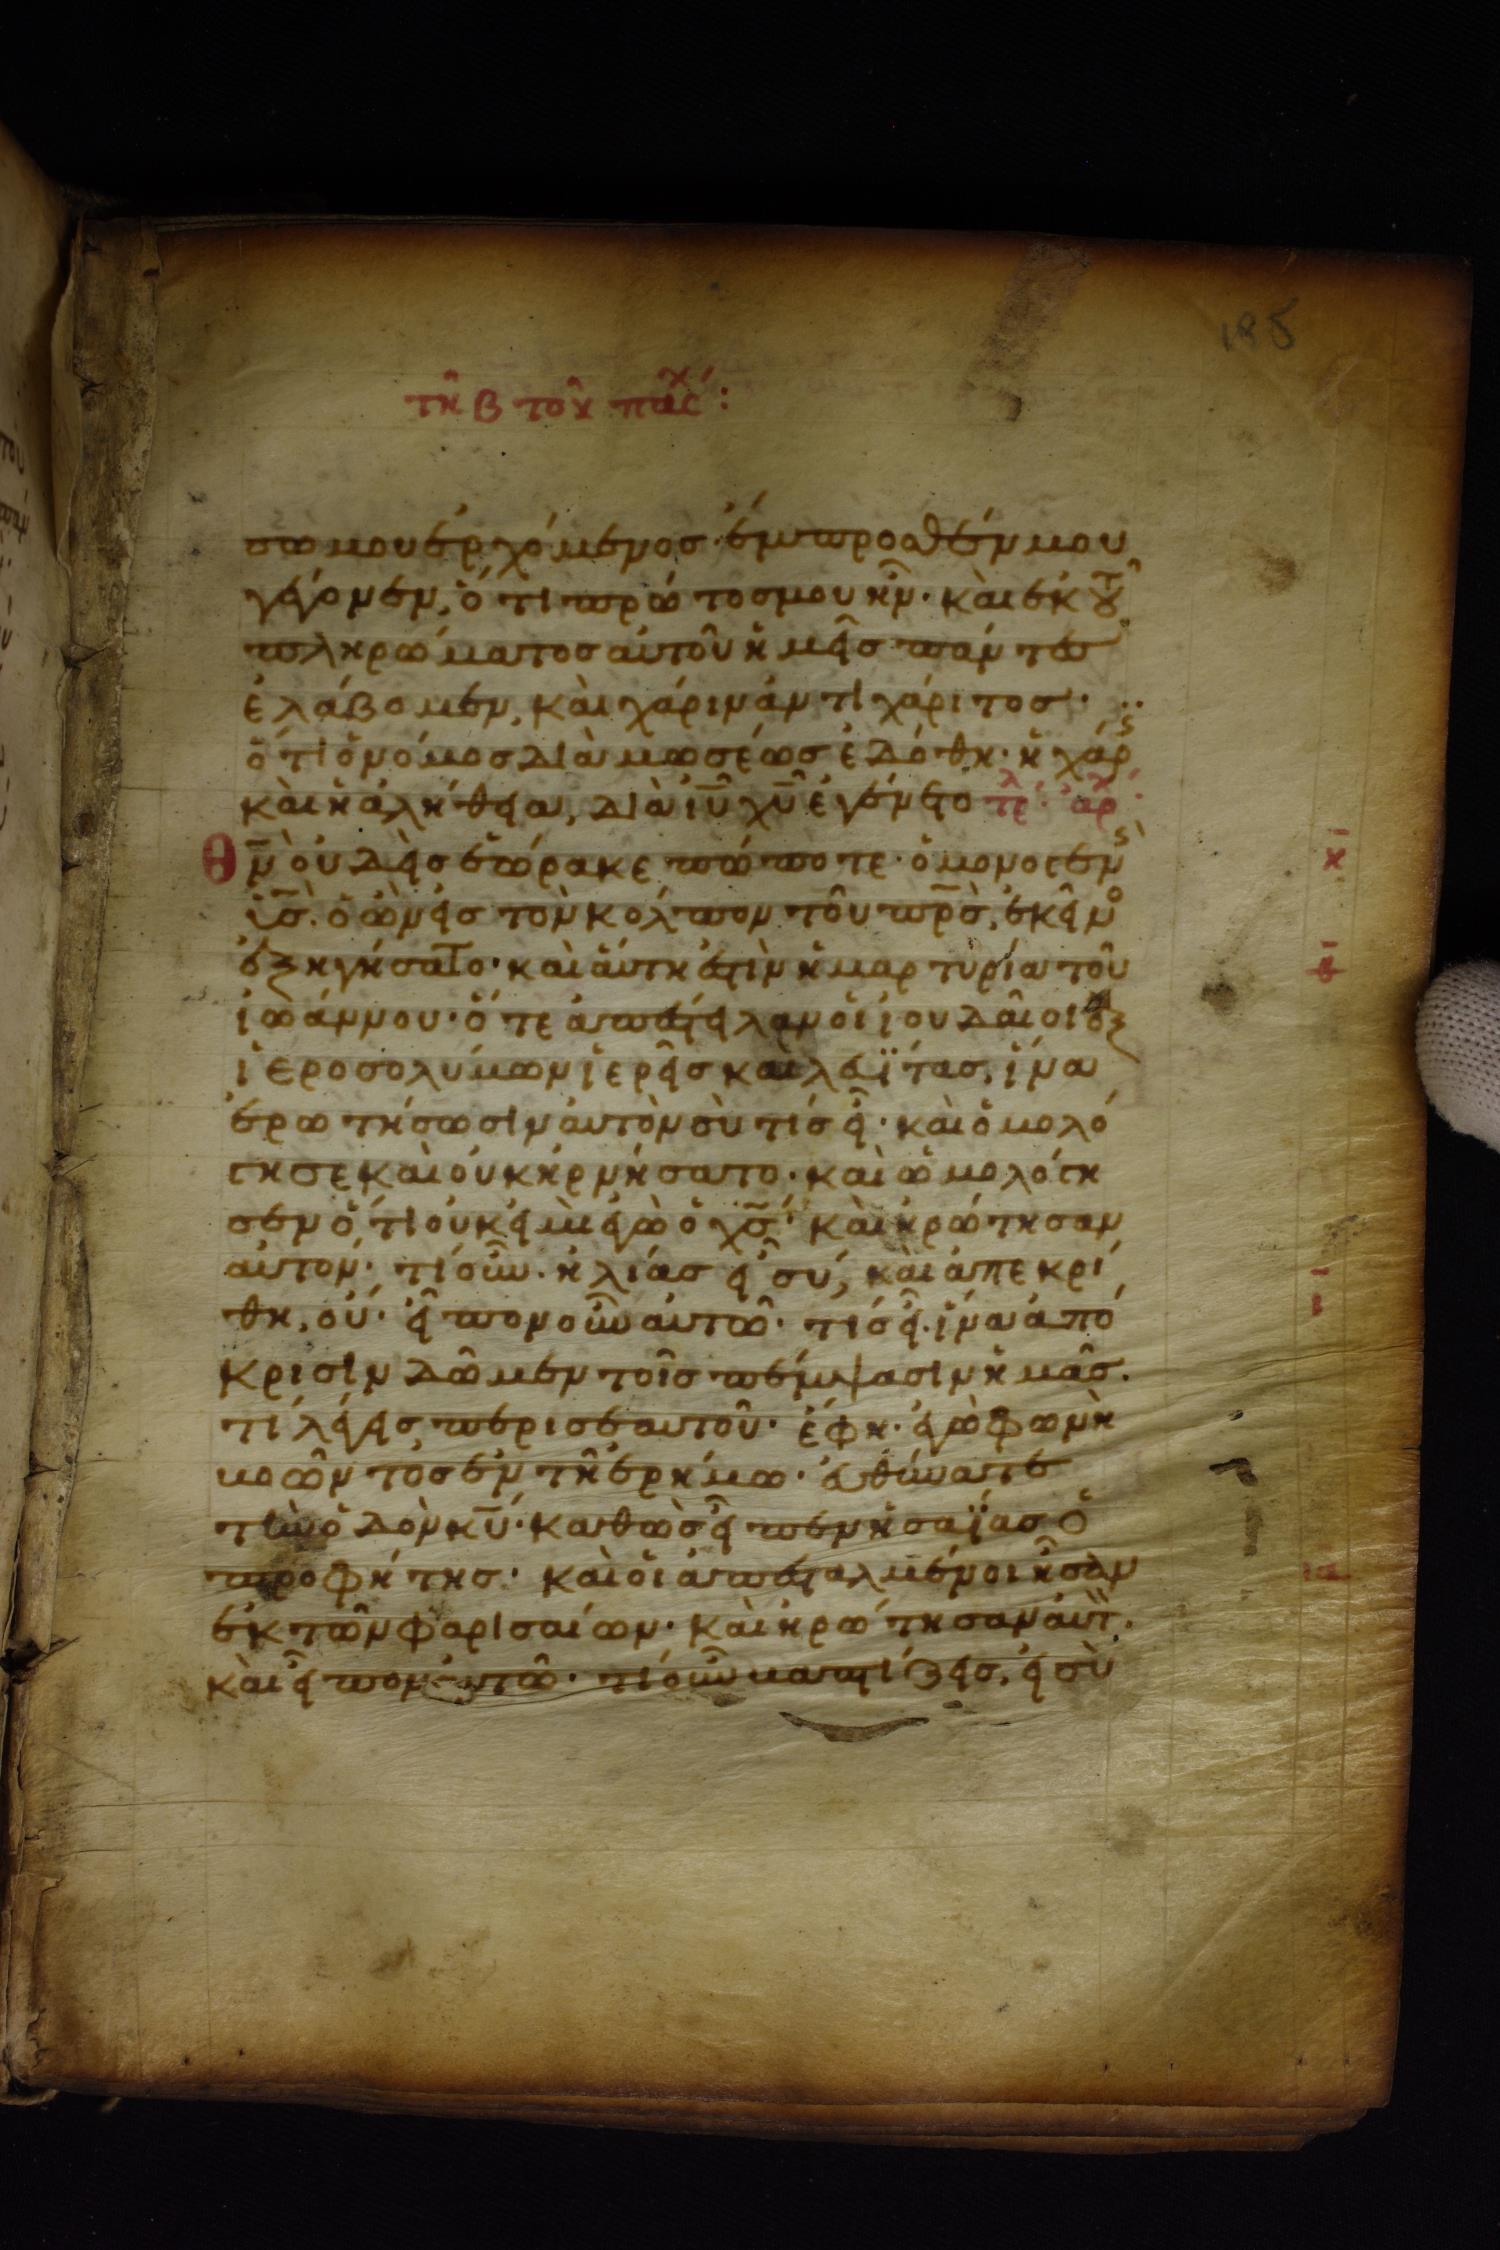 185
τῆ β τοῦ πάσχ:
σω μου ἐρχόμενος· ἔμπροσθέν μου
γέγονεν, ὅτι πρῶτος μου ἦν· καὶ ἐκ τοῦ
πληρώματος αὐτοῦ ἡμεῖς πάντες
ἐλάβομεν, καὶ χάριν ἀντὶ χάριτος·
ὅτι ὁ νόμος διὰ μωσέως ἐδόθη· ἡ χάρις
καὶ ἡ ἀλήθεια, διὰ ἰῦ χῦ ἐγένετο τελ· ἀρχ·
Θν οὐδεὶς ἑώρακε πώποτε· ὁ μονογενὴς
ϊς· ὁ ὢν εἰς τὸν κόλπον τοῦ πρς, ἐκεῖνος
ἐξηγήσατο· καὶ αὕτη ἐστὶν ἡ μαρτυρία τοῦ
ἰωάννου· ὅτε ἀπέστειλαν οἱ ἰουδαῖοι ἐξ
ἱεροσολύμων ἱερεῖς καὶ λευΐτας, ἵνα
ἐρωτήσωσιν αὐτὸν σὺ τίς εἶ· καὶ ὁμολό
γησε καὶ οὐκ ἠρνήσατο· καὶ ὡμολόγη
σεν ὅτι οὐκ εἰμὶ ἐγὼ ὁ χς· καὶ ἠρώτησαν
αὐτόν· τί οὖν· ἠλίας εἶ σύ, καὶ ἀπεκρί
θη, οὔ· εἶπον οὖν αὐτῶ· τίς εἶ· ἵνα ἀπό
κρισιν δῶμεν τοῖς πέμψασιν ἡμᾶς·
τί λέγεις περὶ σεαυτοῦ· ἔφη· ἐγὼ φωνὴ
βοῶντος ἐν τῆ ἐρήμω· εὐθύνατε
τὴν ὁδὸν κυ· καθὼς εἶπεν ἡσαΐας ὁ
προφήτης· καὶ οἱ ἀπεσταλμένοι ἦσαν
ἐκ τῶν φαρισαίων· καὶ ἠρώτησαν αὐτ·
καὶ εἶπον αὐτῶ· τί οὖν βαπτίζεις, εἰ σὺ